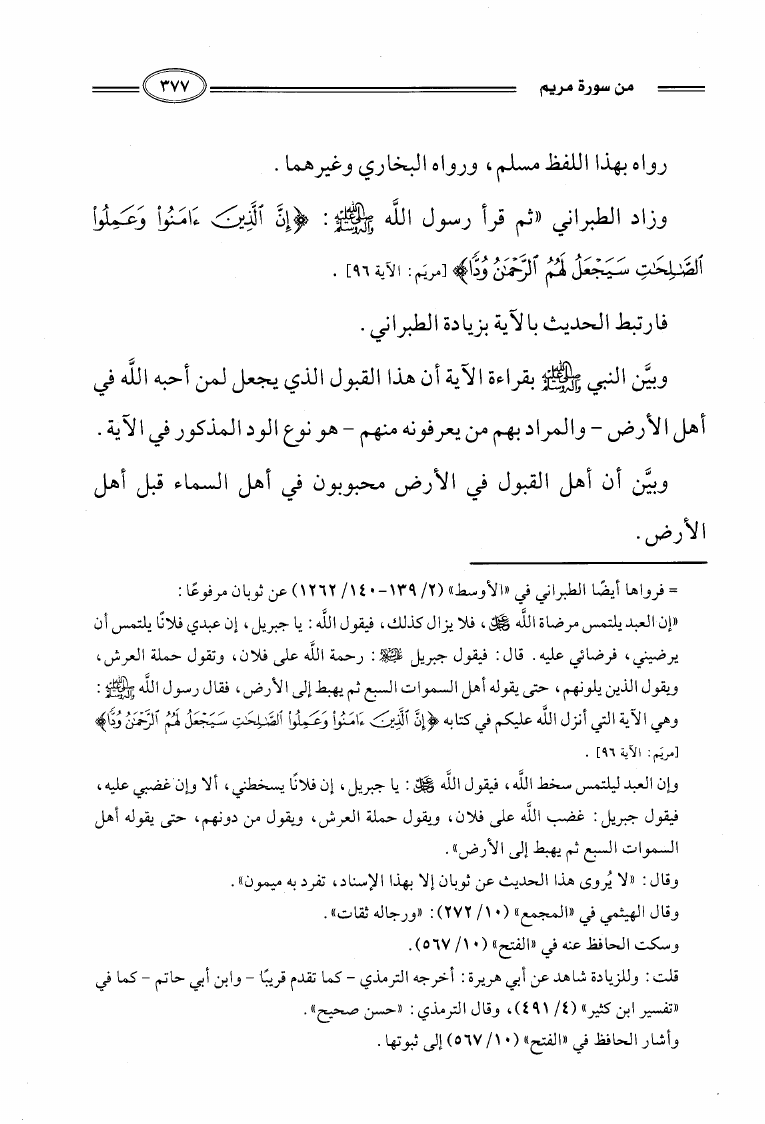 من سورة مريم ٣٧٧
رواه بهذا اللفظ مسلم، ورواه البخاري وغيرهما.
وزاد الطبراني «ثم قرأ رسول اللَّه ﷺ: ﴿إِنَّ ٱلَّذِينَ ءَامَنُوا۟ وَعَمِلُوا۟
ٱلصَّـٰلِحَـٰتِ سَيَجْعَلُ لَهُمُ ٱلرَّحْمَـٰنُ وُدًّا﴾ [مريَم: الآية ٩٦].
فارتبط الحديث بالآية بزيادة الطبراني.
وبيَّن النبي ﷺ بقراءة الآية أن هذا القبول الذي يجعل لمن أحبه اللَّه في
أهل الأرض - والمراد بهم من يعرفونه منهم - هو نوع الود المذكور في الآية.
وبيَّن أن أهل القبول في الأرض محبوبون في أهل السماء قبل أهل
الأرض.
= فرواها أيضًا الطبراني في «الأوسط» (٢/ ١٣٩-١٤٠/ ١٢٦٢) عن ثوبان مرفوعًا:
«إن العبد يلتمس مرضاة اللَّه ﷻ، فلا يزال كذلك، فيقول اللَّه: يا جبريل، إن عبدي فلانًا يلتمس أن
يرضيني، فرضائي عليه. قال: فيقول جبريل ﵇: رحمة اللَّه على فلان، وتقول حملة العرش،
ويقول الذين يلونهم، حتى يقوله أهل السموات السبع ثم يهبط إلى الأرض، فقال رسول اللَّه ﷺ:
وهي الآية التي أنزل اللَّه عليكم في كتابه ﴿إِنَّ ٱلَّذِينَ ءَامَنُوا۟ وَعَمِلُوا۟ ٱلصَّـٰلِحَـٰتِ سَيَجْعَلُ لَهُمُ ٱلرَّحْمَـٰنُ وُدًّا﴾
[مريَم: الآية ٩٦].
وإن العبد ليلتمس سخط اللَّه، فيقول اللَّه ﷻ: يا جبريل، إن فلانًا يسخطني، ألا وإن غضبي عليه،
فيقول جبريل: غضب اللَّه على فلان، ويقول حملة العرش، ويقول من دونهم، حتى يقوله أهل
السموات السبع ثم يهبط إلى الأرض».
وقال: «لا يُروى هذا الحديث عن ثوبان إلا بهذا الإسناد، تفرد به ميمون».
وقال الهيثمي في «المجمع» (١٠/ ٢٧٢): «ورجاله ثقات».
وسكت الحافظ عنه في «الفتح» (١٠/ ٥٦٧).
قلت: وللزيادة شاهد عن أبي هريرة: أخرجه الترمذي - كما تقدم قريبًا - وابن أبي حاتم - كما في
«تفسير ابن كثير» (٤/ ٤٩١)، وقال الترمذي: «حسن صحيح».
وأشار الحافظ في «الفتح» (١٠/ ٥٦٧) إلى ثبوتها.